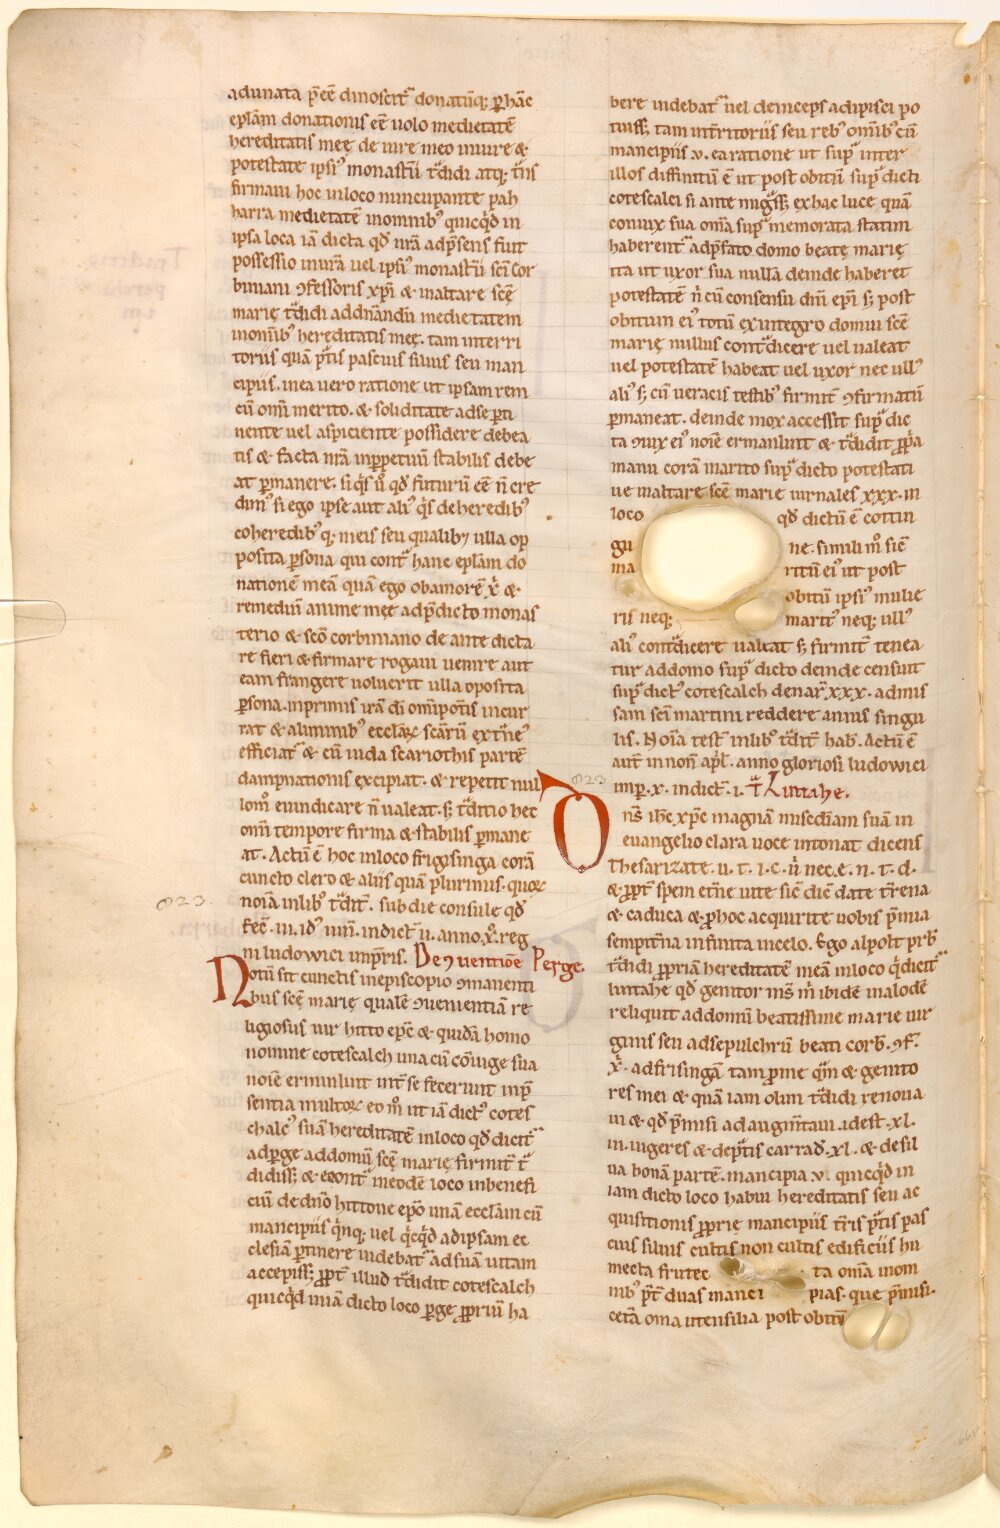 adunata p̄eē dinoscit᷑ donatūq; ꝑ hāc
eplām donationis eē uolo medietatē
hereditatis meę de iure meo in iure &
potestate ipsi᷒ monastīi t᷑didi atq; t᷑ns
firmaui hoc in loco nuncupante pah
harra medietatē in omnib᷒ quicq̇d in
ipsa loca iā dicta qđ nr̄ā adp̄sens fuit
possessio in nr̄ā uel ipsi᷒ monastīi sc̄i Cor
biniani ꝯfessoris xp̄i & in altare scę̄
marię t᷑didi addn̄andū medietatem
in omīb᷒ hereditatis meę. tam in terri
toriis quā p̄tis pascuis siluis seu man
cipiis. in ea uero ratione ut ipsam rem
cū om̄i merito. & soliditate adse ꝑti
nente uel aspiciente possidere debea
tis & facta nr̄a inꝑpetuū stabilis debe
at ꝑmanere. si q̇s ū qđ futurū eē n̄ cre
dim᷒ si ego ipse aut ali᷒ q̇s de heredib᷒
coheredib᷒q; meis seu qualib; ulla op
posita ꝑsona qui cont᷑ hanc eplām do
nationē meā quā ego ob amorē x̄i &
remediū anime meę adp̄dicto monas
terio & sc̄o corbiniano de ante dicta
re fieri & firmare rogaui uenire aut
eam frangere uoluerit ulla oposita
ꝑsona. inprimis irā dī om̄ipotīs incur
rat & aliminib᷒ ecclāꝝ scārū ext᷑ne᷒
efficiat᷑ & cū iuda scariothis partē
dampnationis excipiat. & repetit nul
lom̄ euindicare n̄ ualeat. s; t᷑ditio hec
om̄i tempore firma & stabilis ꝑmane
at. Actū ē hoc in loco frigisinga corā
cuncto clero & aliis quā plurimis. quoꝝ
noīa in lib᷒ t᷑dit᷑. sub die consule qđ
fēc̄. iii. id᷒ iun̄. indict᷑ ii. anno. x̊. reg
ni ludowici imp̄ris. De ꝯuentiōe Perge.
Notū sit cunctis in episcopio ꝯmanenti
bus scę̄ marię qualē ꝯuenientiā re
ligiosus uir hitto epc̄ & quidā homo
nomine cotescalch una cū cōiuge sua
noīe ermlint int᷑ se fecerunt inp̄
sentia multoꝝ eo m̊ ut iā dict᷒ cotes
chalc᷒ suā hereditatē in loco qđ dicit᷑
adperge addomū scę̄ marię firmit᷑ t᷑
didiss; & econt᷑ in eodē loco in benefi
ciū de dn̄o hittone ep̄o unā ecclām cū
mancipiis q̇nq; uel q̇cq̇d adipsam ec
clesiā ꝑtinere uidebat᷑ ad suā uitam
accepiss; ꝓpt᷑ illud t᷑didit cotescalch
quicq̇d in iā dicto loco perge ꝓpriū ha
bere uidebat᷑ uel deinceps adipisci po
tuiss; tam in t᷑ritoriis seu reb᷒ om̄ib᷒ cū
mancipiis .v. ea ratione ut sup᷑ inter
illos diffinitū ē ut post obitū sup᷑ dicti
cotescalci si ante mig᷑ss; ex hac luce quā
coniux sua om̄ia sup᷑ memorata statim
haberent᷑ adp̄fato domo beatę marię
ita ut uxor sua nullā deinde haberet
potestatē n̄ cū consensu dīn epī s; post
obitum ei᷒ totū ex integro domui scę̄
marię nullus cont᷑dicere uel ualeat
uel potestatē habeat uel uxor nec ull᷒
ali᷒ s; cū ueracis testib᷒ firmit᷑ ꝯfirmatū
ꝑmaneat. deinde mox accessit sup᷑ dic
ta ꝯiux ei᷒ noīe ermanlint & t᷑didit ꝓp̄a
manu corā marito sup᷑ dicto potestati
ue in altare scę̄ marie iurnales xxx. in
loco qđ dictū ē cottin
gu ne. simili m̊ sic̄
ma ritū ei᷒ ut post
obitū ipsi᷒ mulie
ris neq; marit᷒ neq; ull᷒
ali᷒ cont᷑dicere ualeat s; firmit᷑ tenea
tur ad domo sup᷑ dicto deinde censuit
sup᷑ dict᷒ cotescalch denar̄ xxx. ad mis
sam sc̄i martini reddere annis singu
lis. Noīa test᷑ in lib᷒ t᷑dit᷑ hab̄. Actū ē
aut̄ in non̄ ap̄l. anno gloriosi ludowici
imp̄. x. indict᷑. i. t᷑ Liutahe.
823
Dn̄s ih̄c xp̄c magnā mis̄cdīam suā in
euangelio clara uoce intonat dicens
Thesarizate. u. t. i. c. u̇ nec. e. n. t. d.
& ꝓpt᷑ spem et̄ne uite sic̄ dic̄ date t᷑rena
& caduca & ꝑ hoc acquirite uobis p̄mia
sempit᷑na in finita in celo. Ego alpolt pr̄b᷒
t᷑didi ꝓpriā hereditatē meā in loco q̇ dicit᷑
liutahe qđ genitor m̄s m̄ ibidē in alodē
reliquit ad domū beatissime marie uir
ginis seu ad sepulchrū beati corb̄. ꝯf̄.
x̄i. ad frisingā tam ꝑ me q̄m & genito
res mei & quā iam olim t᷑didi renoua
ui & qđ p̄misi ad augm̄taui. id est. xl.
iii. iugeres & de p̄tis carrađ. xl. & de sil
ua bonā partē. mancipia .vi. quicq̇d in
iam dicto loco habui hereditatis seu ac
quisitionis ꝓprię mancipiis t᷑ris p̄tis pas
cuis siluis cultis non cultis edificiis hu
mecta frutec ta om̄ia in om
nib᷒ p̄t᷑ duas manci pias. que p̄misi.
cet᷑a om̄ia utensilia post obitū
823